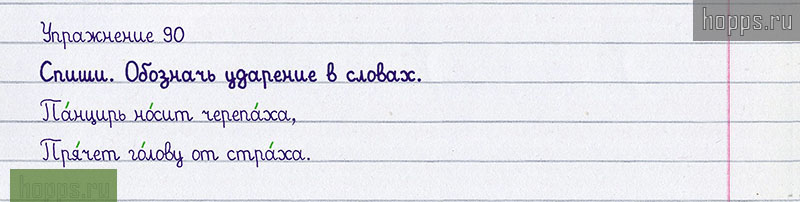 hopps.ru
Упражнение 90
Спиши. Обозначь ударение в словах.
Па́нцирь но́сит черепа́ха,
Пря́чет го́лову от стра́ха.
hopps.ru